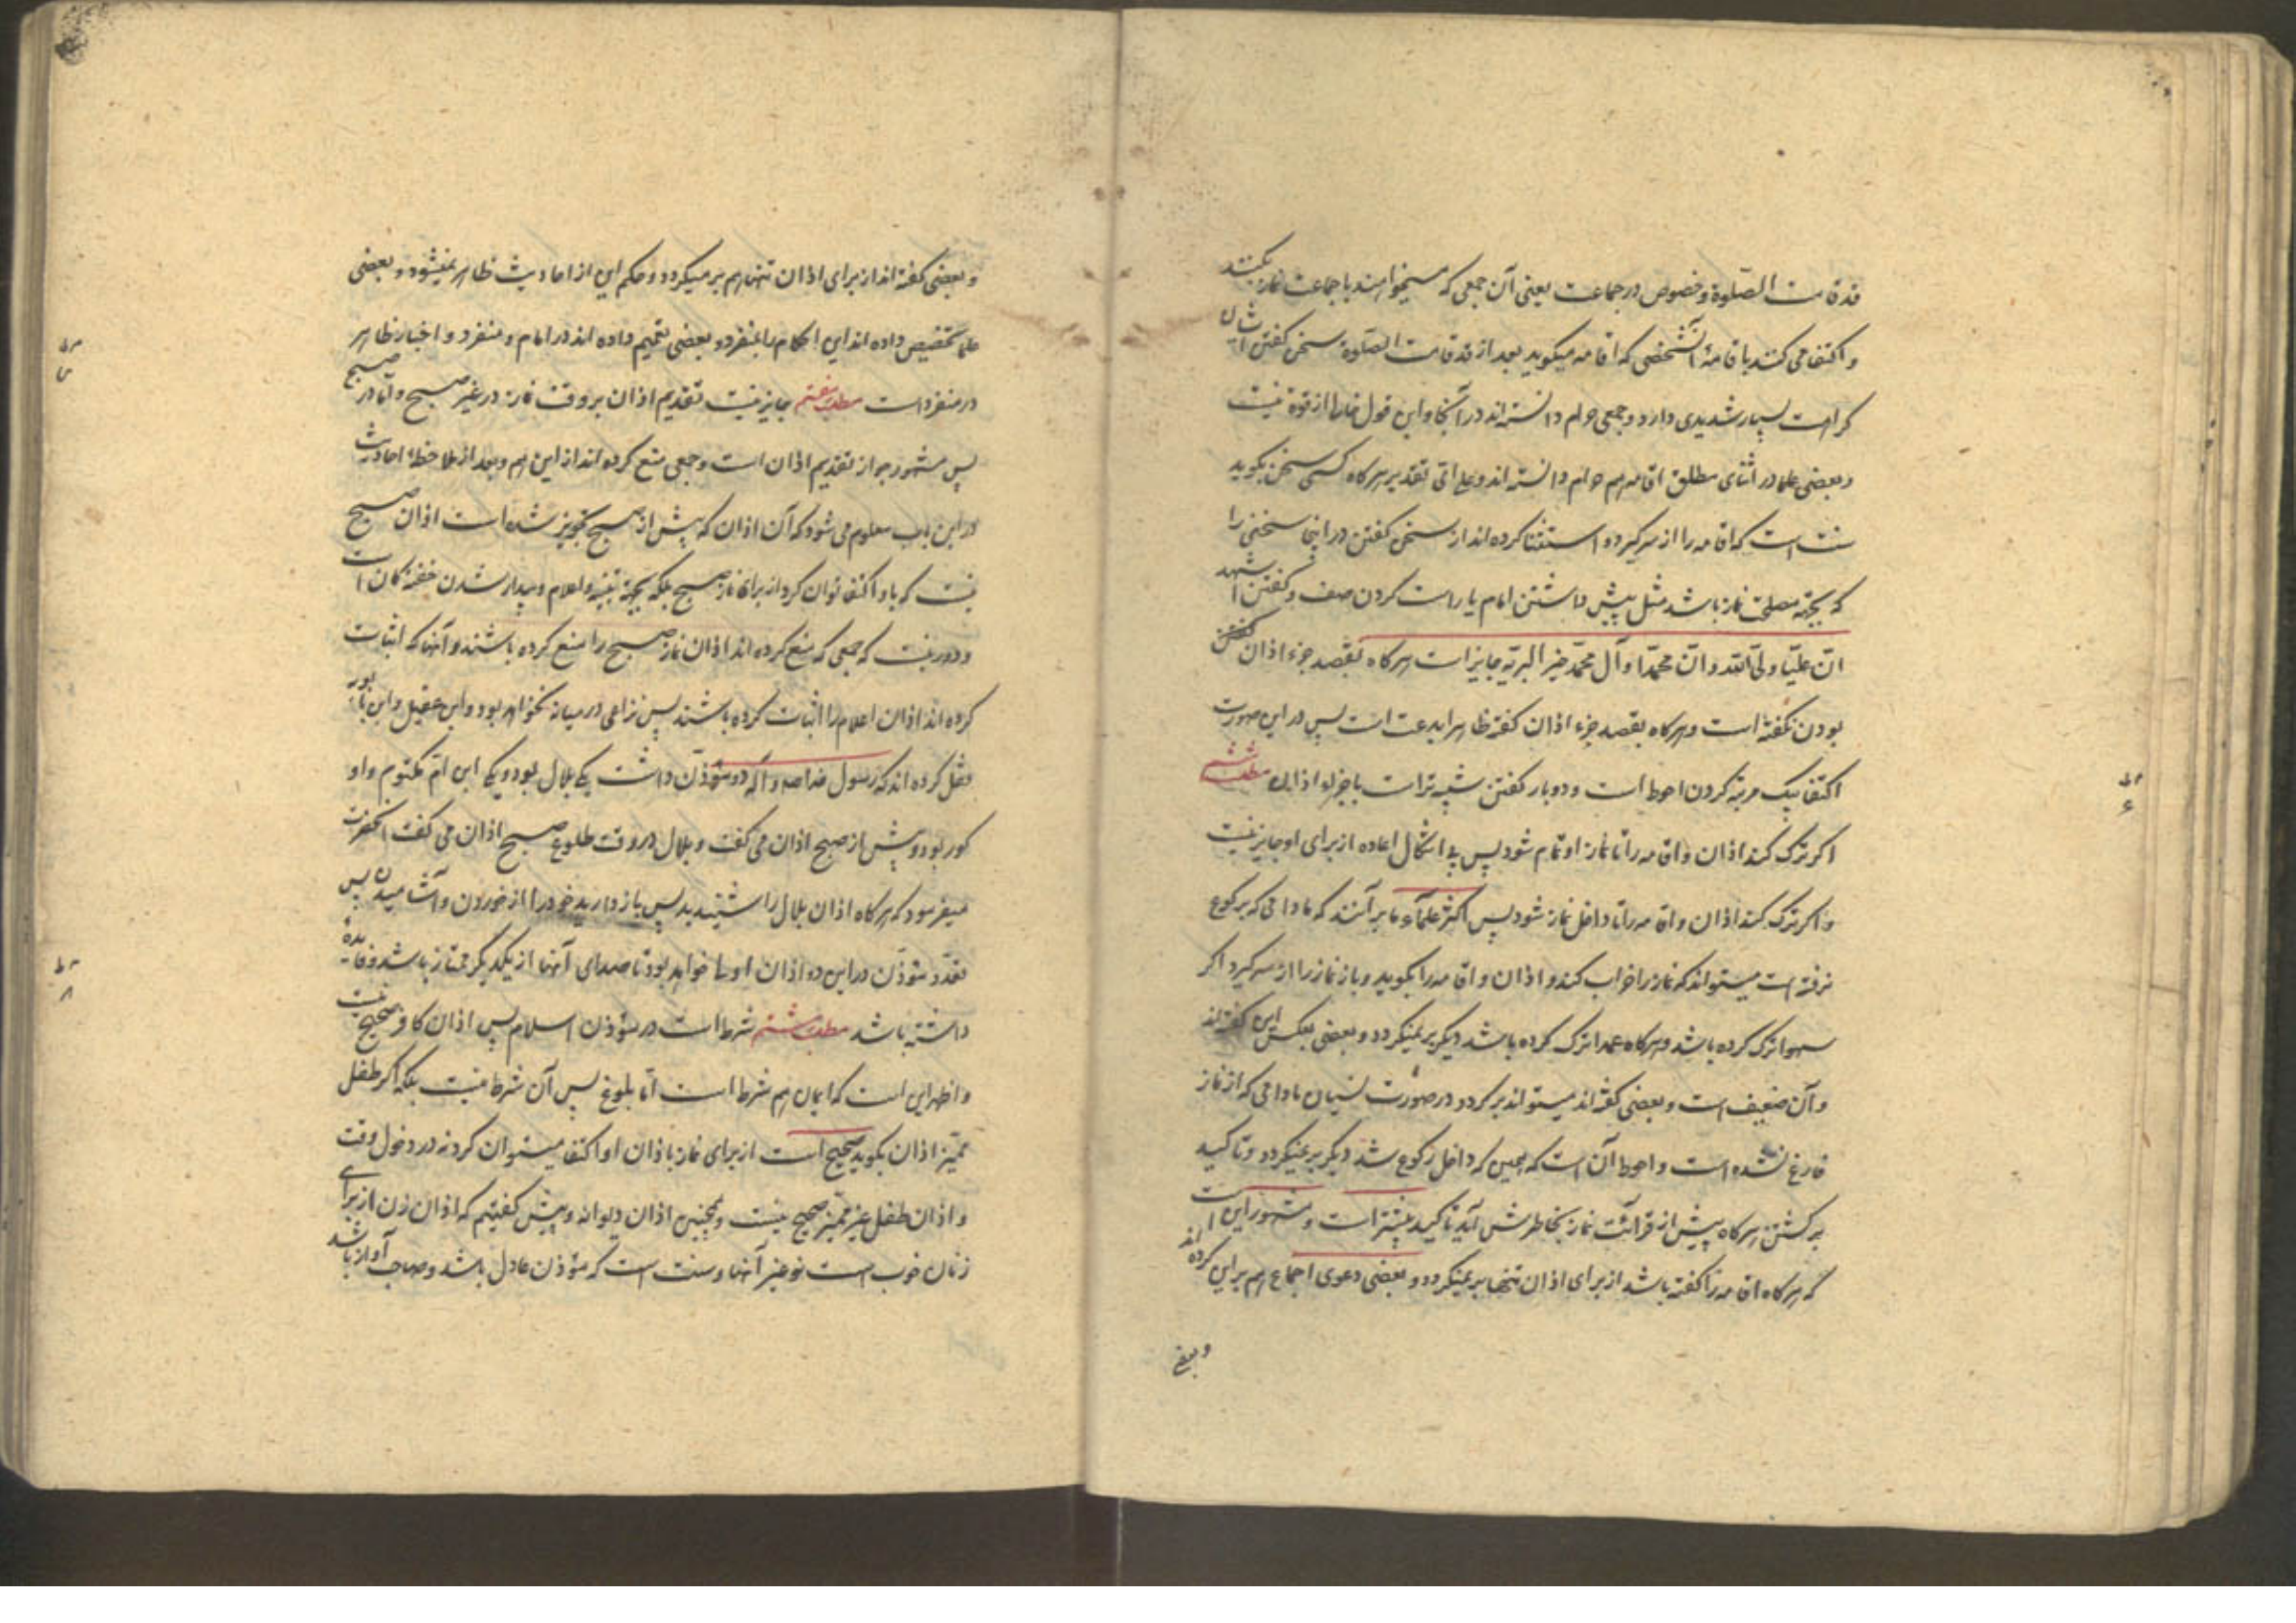 قد قامت الصّلوة و خصوص در جماعت یعنی آن جمعی که میخواهند با جماعت نماز بکنند
و اکتفا می کنند باقامهٔ آنشخصی که اقامه میکوید بعد از قد قامت الصّلوة سخن کفتن ایشان
کراهت بسیار شدیدی دارد و جمعی حرام دانسته اند در آنجا و این قول خالی از قوة نیست
و بعضی علما در اثنای مطلق اقامه هم حرام دانسته اند و علی ایّ تقدیر هرکاه کسی سخن بکوید
سنت است که اقامه را از سر کیرد و استثنا کرده اند از سخن کفتن در اینجا سخنی را
که بجهة مصلحت نماز باشد مثل پیش داشتن امام یا راست کردن صف و کفتن اشهد
انّ علیّا ولیّ الله و انّ محمّدا و آل محمّد خیر البریّه جایز است هرکاه بقصد جزء اذان
بودن نکفته است و هرکاه بقصد جزء اذان کفته ظاهرا بدعت است پس در این صورت
اکتفا بیک مرتبه کردن احوط است و دوبار کفتن شبیه تر است باجزاء اذان مطلب ششم
اکر ترک کند اذان و اقامه را تا نماز او تمام شود پس بی اشکال اعاده از برای او جایز نیست
و اکر ترک کند اذان و اقامه را تا داخل نماز شود پس اکثر علمآء ما بر آنند که مادامی که برکوع
نرفته است میتواند که نماز را خراب کند و اذان و اقامه را بکوید و باز نماز را از سر کیرد اکر
سهوا ترک کرده باشد و هرکاه عمدا ترک کرده باشد دیکر بر نمیکردد و بعضی بعکس این کفته اند
و آن ضعیف است و بعضی کفته اند میتواند برکردد در صورت نسیان مادامی که از نماز
فارغ نشده است و احوط آن است که همین که داخل رکوع شد دیکر بر نمیکردد و تاکید
برکشتن هرکاه پیش از قرائت نماز بخاطرش آید تاکید بیشتر است و مشهور این است
که هرکاه اقامه را کفته باشد از برای اذان تنها بر نمیکردد و بعضی دعوی اجماع هم بر این کرده اند
و بعضی
و بعضی کفته اند از برای اذان تنها هم بر میکردد و حکم این از احادیث ظاهر نمیشود و بعضی
علما تخصیص داده اند این احکام را بمنفرد و بعضی تعمیم داده اند در امام و منفرد و اخبار ظاهر
در منفرد است مطلب هفتم جایز نیست تقدیم اذان بر وقت نماز در غیر صبح و امّا در صبح
پس مشهور جواز تقدیم اذان است و جمعی منع کرده اند از این هم و بعد از ملاحظهٔ احادیث
در این باب معلوم می شود که آن اذان که پیش از صبح تجویز شده است اذان صبح
نیست که باو اکتفا توان کرد از برای نماز صبح بلکه بجهة تنبیه و اعلام و بیدار شدن خفته کان است
و دور نیست که جمعی که منع کرده اند اذان نماز صبح را منع کرده باشند و آنها که اثبات
کرده اند اذان اعلام را اثبات کرده باشند پس نزاعی در میانه نخواهد بود و ابن عقیل و ابن بابویه
نقل کرده اند که رسول خدا صه و آله دو مؤذّن داشت یکی بلال بود و یکی ابن امّ مکتوم و او
کور بود و پیش از صبح اذان می کفت و بلال در وقت طلوع صبح اذان می کفت آنحضرت
میفرمود که هرکاه اذان بلال را شنیدید پس باز دارید خود را از خوردن و آشامیدن پس
تعدّد مؤذّن در این دو اذان اولی خواهد بود تا صدای آنها از یکدیکر ممتاز باشد و فایدهٔ
داشته باشد مطلب هشتم شرط است در مؤذن اسلام پس اذان کافر صحیح نیست
و اظهر این است که ایمان هم شرط است امّا بلوغ پس آن شرط نیست بلکه اکر طفل
ممیّز اذان بکوید صحیح است از برای نماز باذان او اکتفا میتوان کرد نه در دخول وقت
و اذان طفل غیر ممیّز صحیح نیست و همچنین اذان دیوانه و پیش کفتیم که اذان زن از برای
زنان خوب است نه غیر آنها و سنت است که مؤذن عادل باشد و صاحب آواز باشد